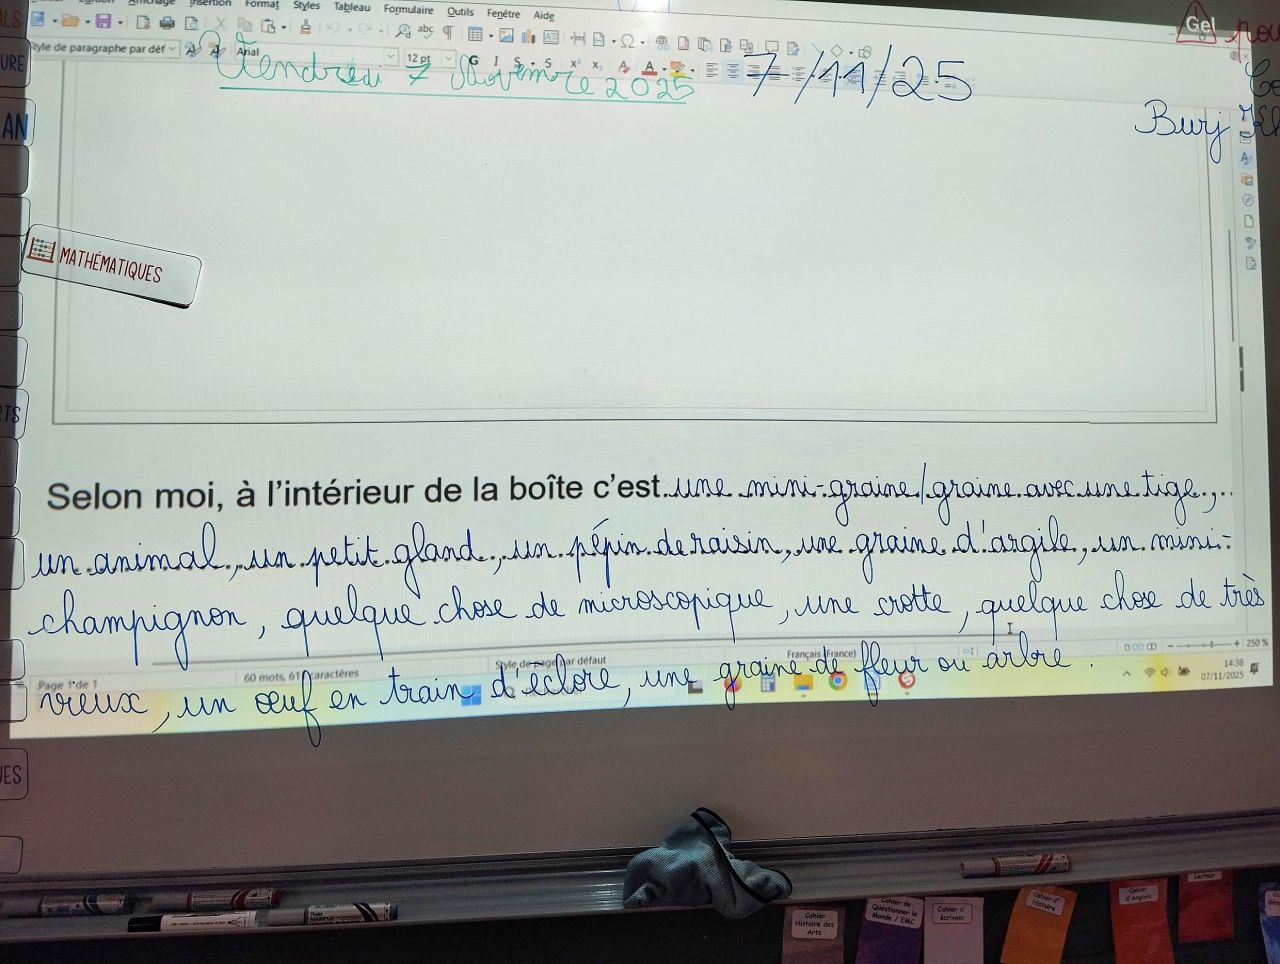 Insertion Format Styles Tableau Formulaire Outils Fenêtre Aide
Style de paragraphe par déf Arial 12 pt G I S S
Gel
Vendredi 7 Novembre 2025 7/11/25
Burj
URE
AN
MATHÉMATIQUES
Selon moi, à l'intérieur de la boîte c'est une mini-graine/graine avec une tige,
un animal, un petit gland, un pépin de raisin, une graine d'argile, un mini-
champignon, quelque chose de microscopique, une crotte, quelque chose de très
vieux, un œuf en train d'éclore, une graine de fleur ou arbre.
Page 1 de 1 60 mots, 61 caractères Style de page par défaut Français (France) 250 %
14:38
07/11/2025
Cahier Histoire des Arts
Cahier de Questionner le Monde / EMC
Cahier d'écrivain
Cahier d'Histoire
Cahier d'Anglais
Lecteur